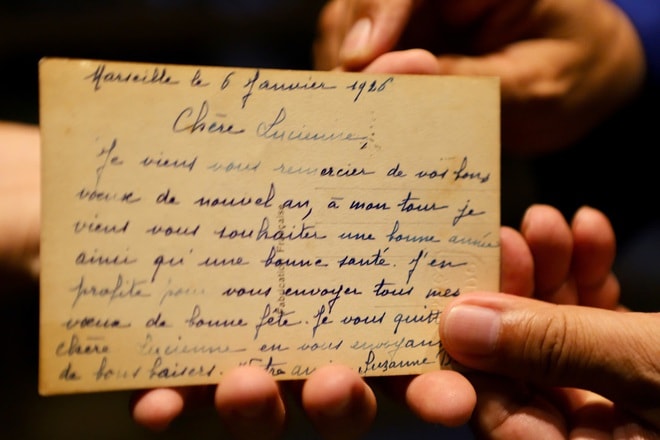 Marseille le 6 Janvier 1926
Chère Lucienne,
Je viens vous remercier de vos bons
vœux de nouvel an, à mon tour je
viens vous souhaiter une bonne année
ainsi qu'une bonne santé. J'en
profite pour vous envoyer tous mes
vœux de bonne fête. Je vous quitt
chère Lucienne en vous envoyan
de bons baisers. Votre amie Suzanne
Fabrication Française